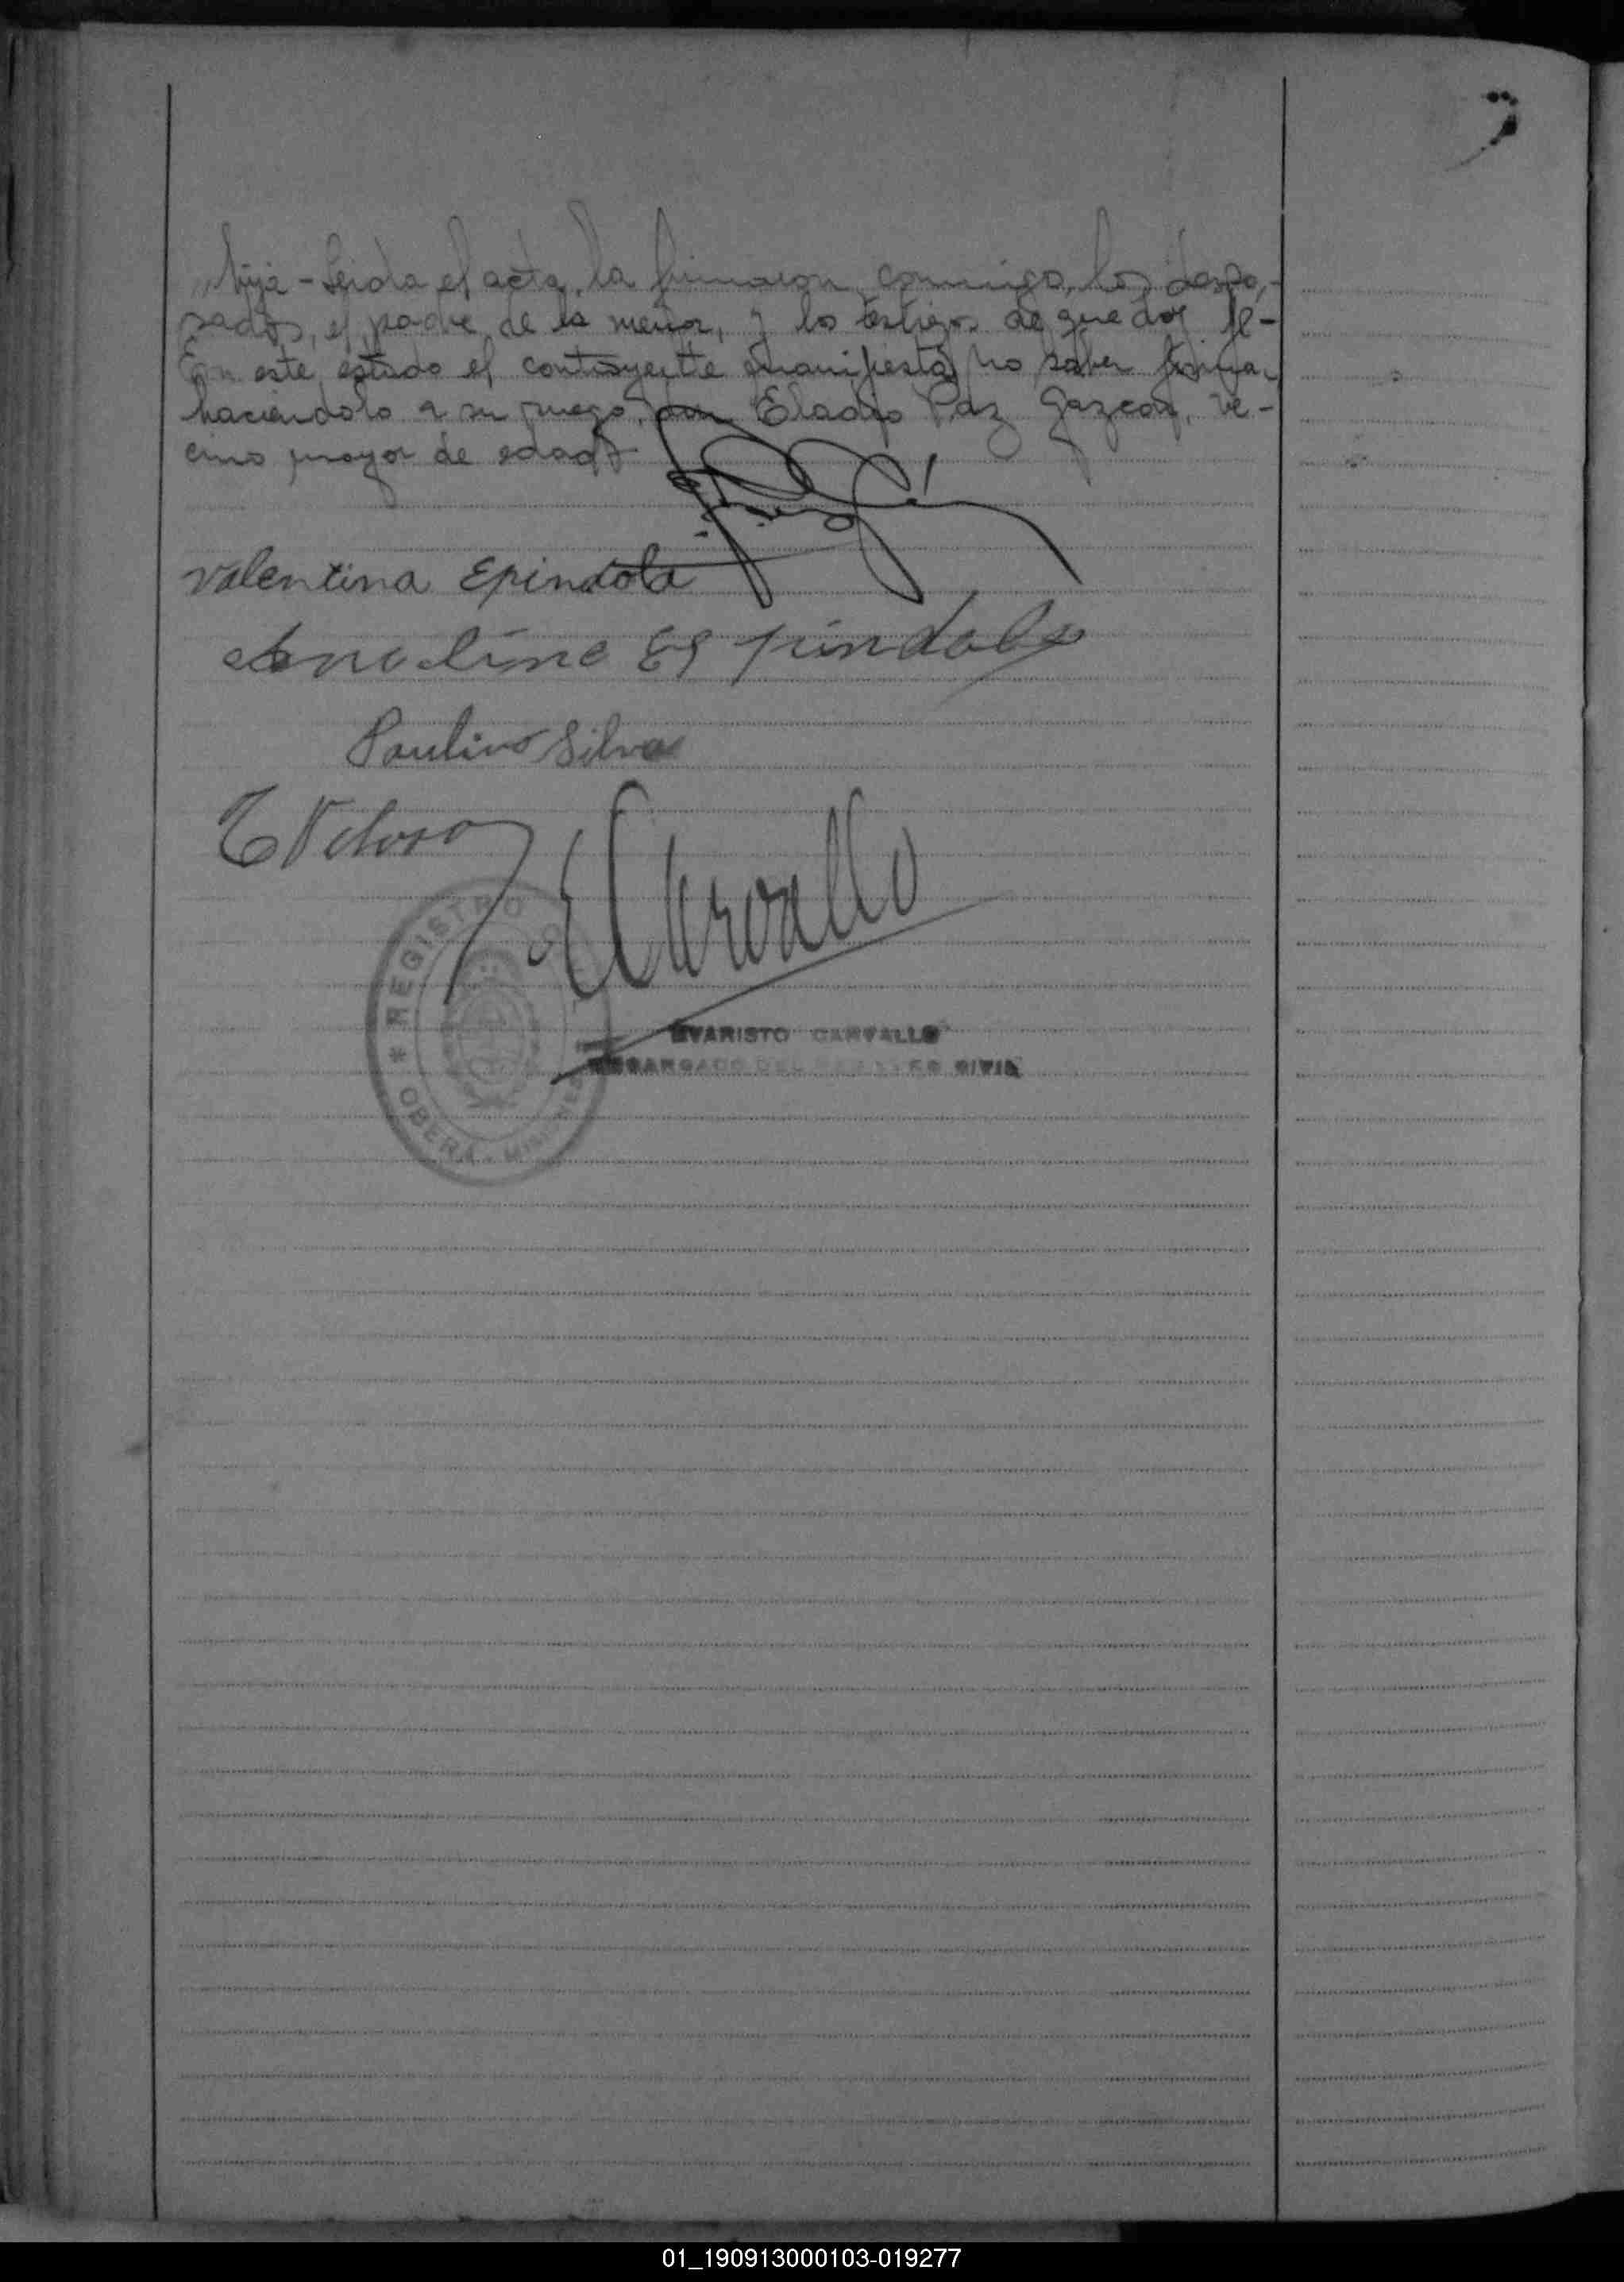 hija - Leida el acta, la firmaron conmigo, los despo,-
sados, el padre de la menor, y los testigos de que doy fe-
En este estado el contrayente manifesta no saber firmar
haciendolo a su ruego, don Eladio Paz Gazcon, ve-
cino mayor de edad
valentina Epindola
Es pindola
Paulino Silva
ECarvallo
REGISTRO
EVARISTO CARVALLO
ENCARGADO DEL REGISTRO CIVIL
* OBERA - MIS
01_190913000103-019277